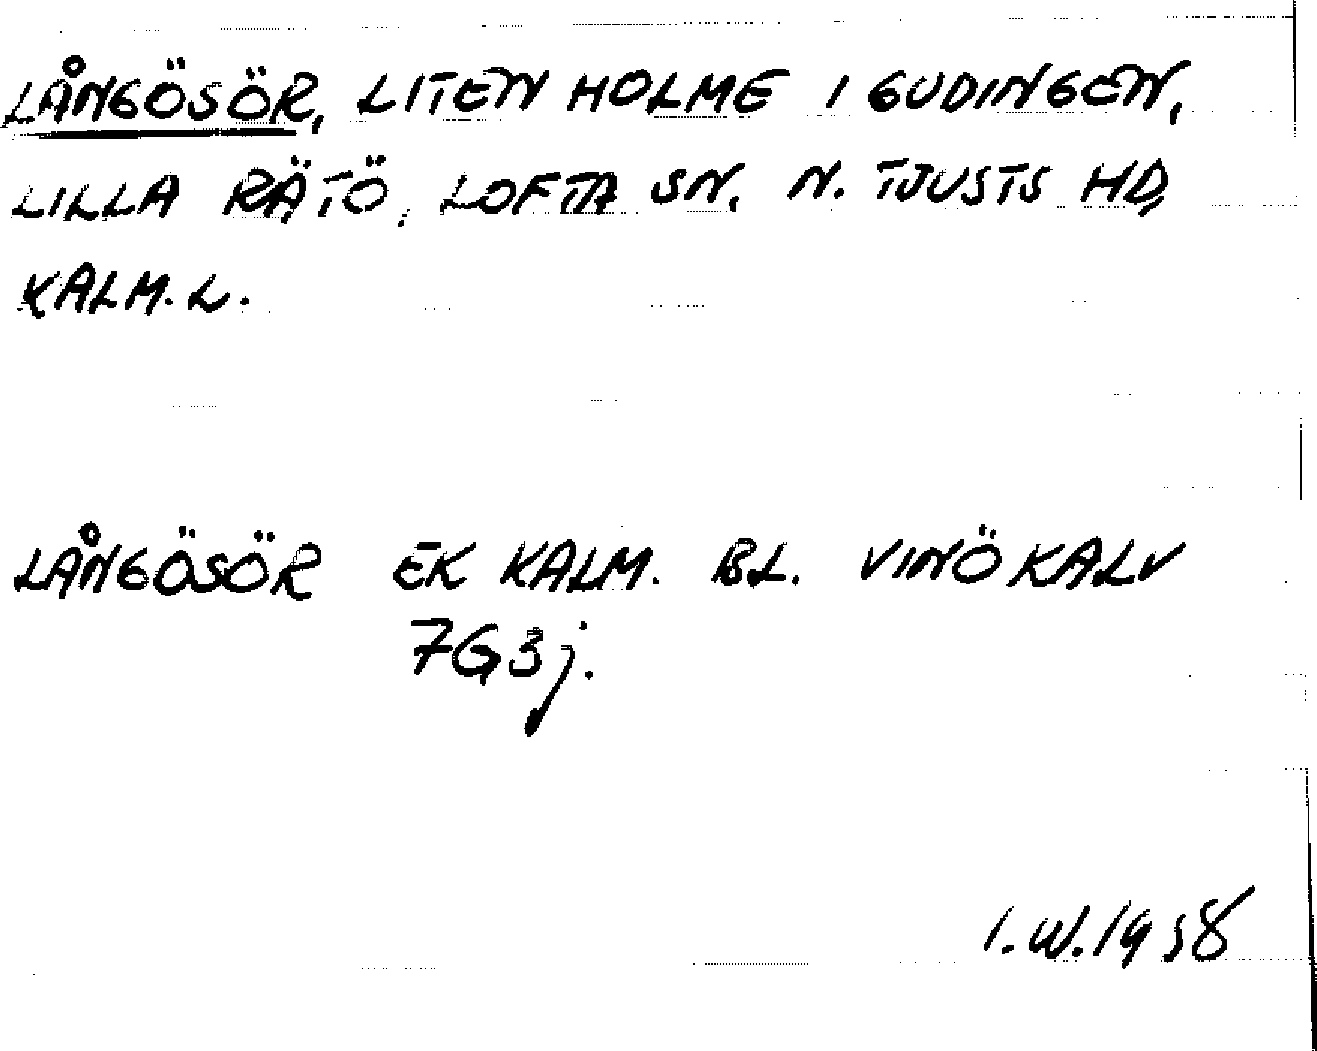 LÅNGÖSÖR, LITEN HOLME I GUDINGEN,
LILLA RÄTÖ, LOFTA SN. N. TJUSTS HD,
KALM. L.
LÅNGÖSÖR EK KALM. BL. VINÖKALV
7G3j.
I.W.1958